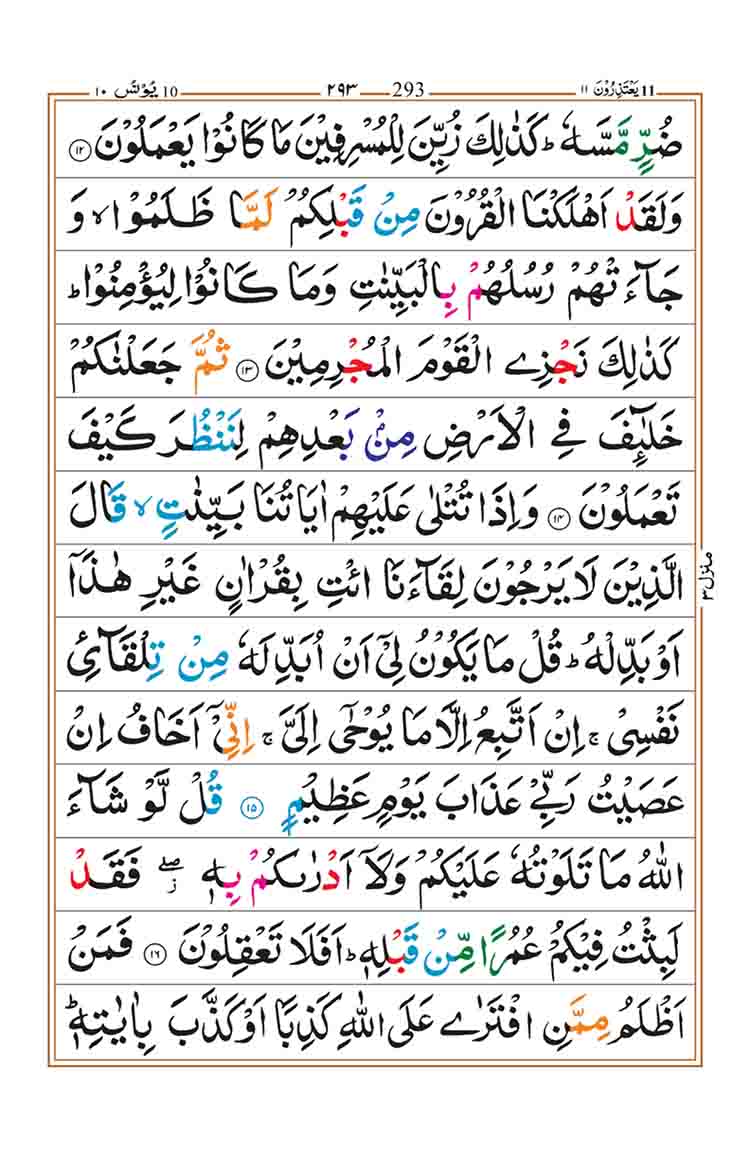 11 يَعْتَذِرُوْنَ ۱۱ 293 ۲۹۳ 10 يُوْنُس ۱۰
ضُرٍّ مَّسَّهٗ ؕ كَذٰلِكَ زُيِّنَ لِلْمُسْرِفِيْنَ مَا كَانُوْا يَعْمَلُوْنَ ۱۲
وَلَقَدْ اَهْلَكْنَا الْقُرُوْنَ مِنْ قَبْلِكُمْ لَمَّا ظَلَمُوْا ۙ وَ
جَآءَتْهُمْ رُسُلُهُمْ بِالْبَيِّنٰتِ وَمَا كَانُوْا لِيُؤْمِنُوْا ؕ
كَذٰلِكَ نَجْزِے الْقَوْمَ الْمُجْرِمِيْنَ ۱۳ ثُمَّ جَعَلْنٰكُمْ
خَلٰٓئِفَ فِے الْاَرْضِ مِنْۢ بَعْدِهِمْ لِنَنْظُرَ كَيْفَ
تَعْمَلُوْنَ ۱۴ وَاِذَا تُتْلٰى عَلَيْهِمْ اٰيَاتُنَا بَيِّنٰتٍ ۙ قَالَ
الَّذِيْنَ لَا يَرْجُوْنَ لِقَآءَنَا ائْتِ بِقُرْاٰنٍ غَيْرِ هٰذَآ
اَوْ بَدِّلْهُ ؕ قُلْ مَا يَكُوْنُ لِيْٓ اَنْ اُبَدِّلَهٗ مِنْ تِلْقَآئِ
نَفْسِيْ ۚ اِنْ اَتَّبِعُ اِلَّا مَا يُوْحٰٓى اِلَيَّ ۚ اِنِّيْٓ اَخَافُ اِنْ
عَصَيْتُ رَبِّيْ عَذَابَ يَوْمٍ عَظِيْمٍ ۱۵ قُلْ لَّوْ شَآءَ
اللّٰهُ مَا تَلَوْتُهٗ عَلَيْكُمْ وَلَآ اَدْرٰىكُمْ بِهٖ ۖز فَقَدْ
لَبِثْتُ فِيْكُمْ عُمُرًا مِّنْ قَبْلِهٖ ؕ اَفَلَا تَعْقِلُوْنَ ۱۶ فَمَنْ
اَظْلَمُ مِمَّنِ افْتَرٰے عَلَى اللّٰهِ كَذِبًا اَوْ كَذَّبَ بِاٰيٰتِهٖ ؕ
منزل ۳